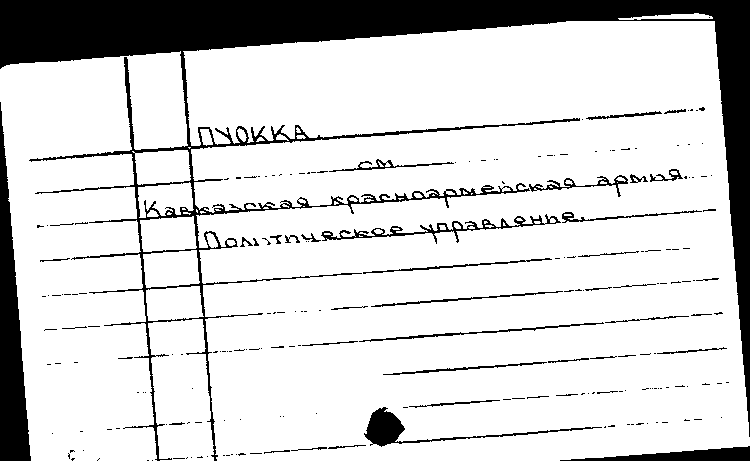 ПУОККА.
см
Кавказская красноармейская армия.
Политическое управление.